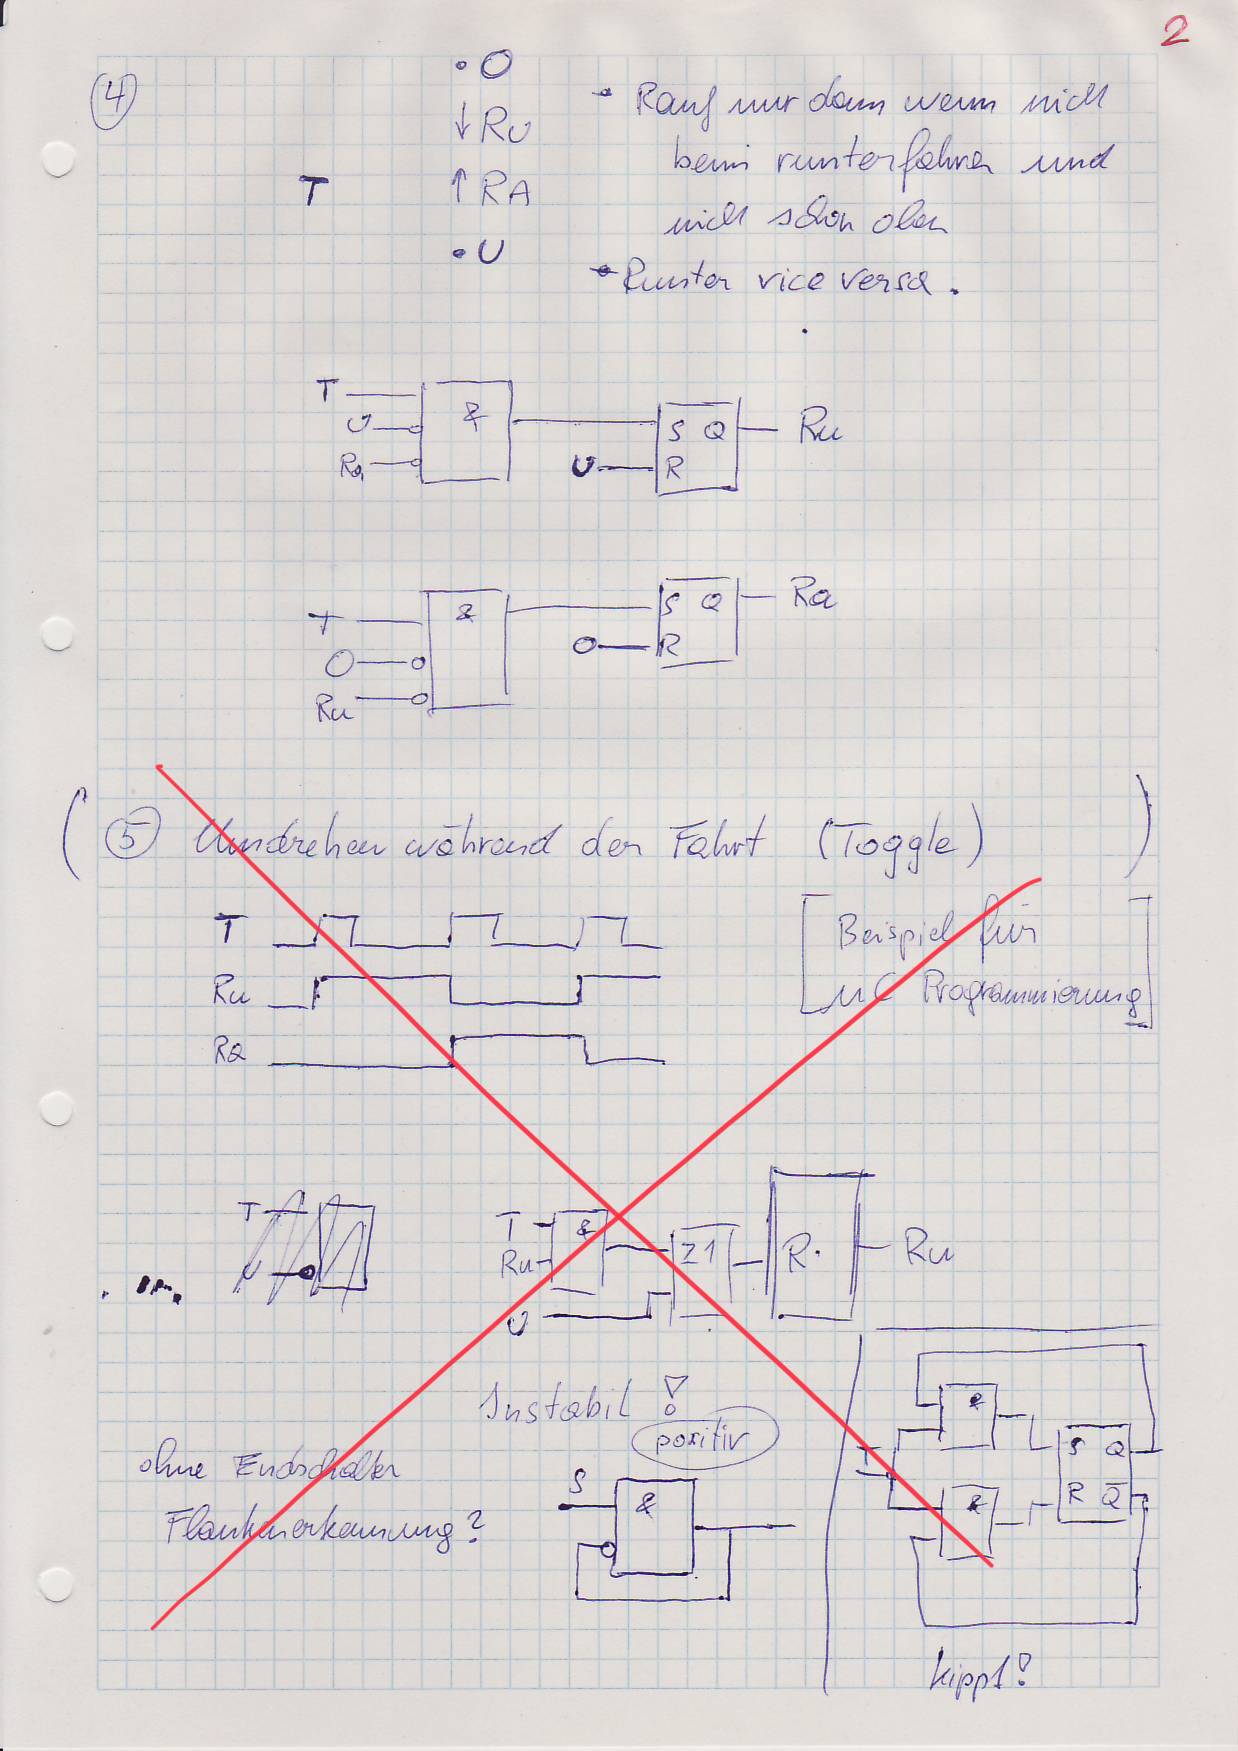 2
4
• O
↓ RU
T
↑ RA
• U
• Rauf nur dann wenn nicht
beim runterfahren und
nicht schon oben
• Runter vice versa.
T
U
Ra
&
U
S Q
R
Ru
T
O
Ru
&
O
S Q
R
Ra
( 5 Umdrehen während der Fahrt (Toggle) )
[Beispiel für
µC Programmierung]
T
Ru
Ra
T
U
T
Ru
&
U
≥1
R
Ru
Instabil !
positiv
ohne Endschalter
Flankenerkennung?
S
&
T
&
&
S Q
R Q̅
kippt!